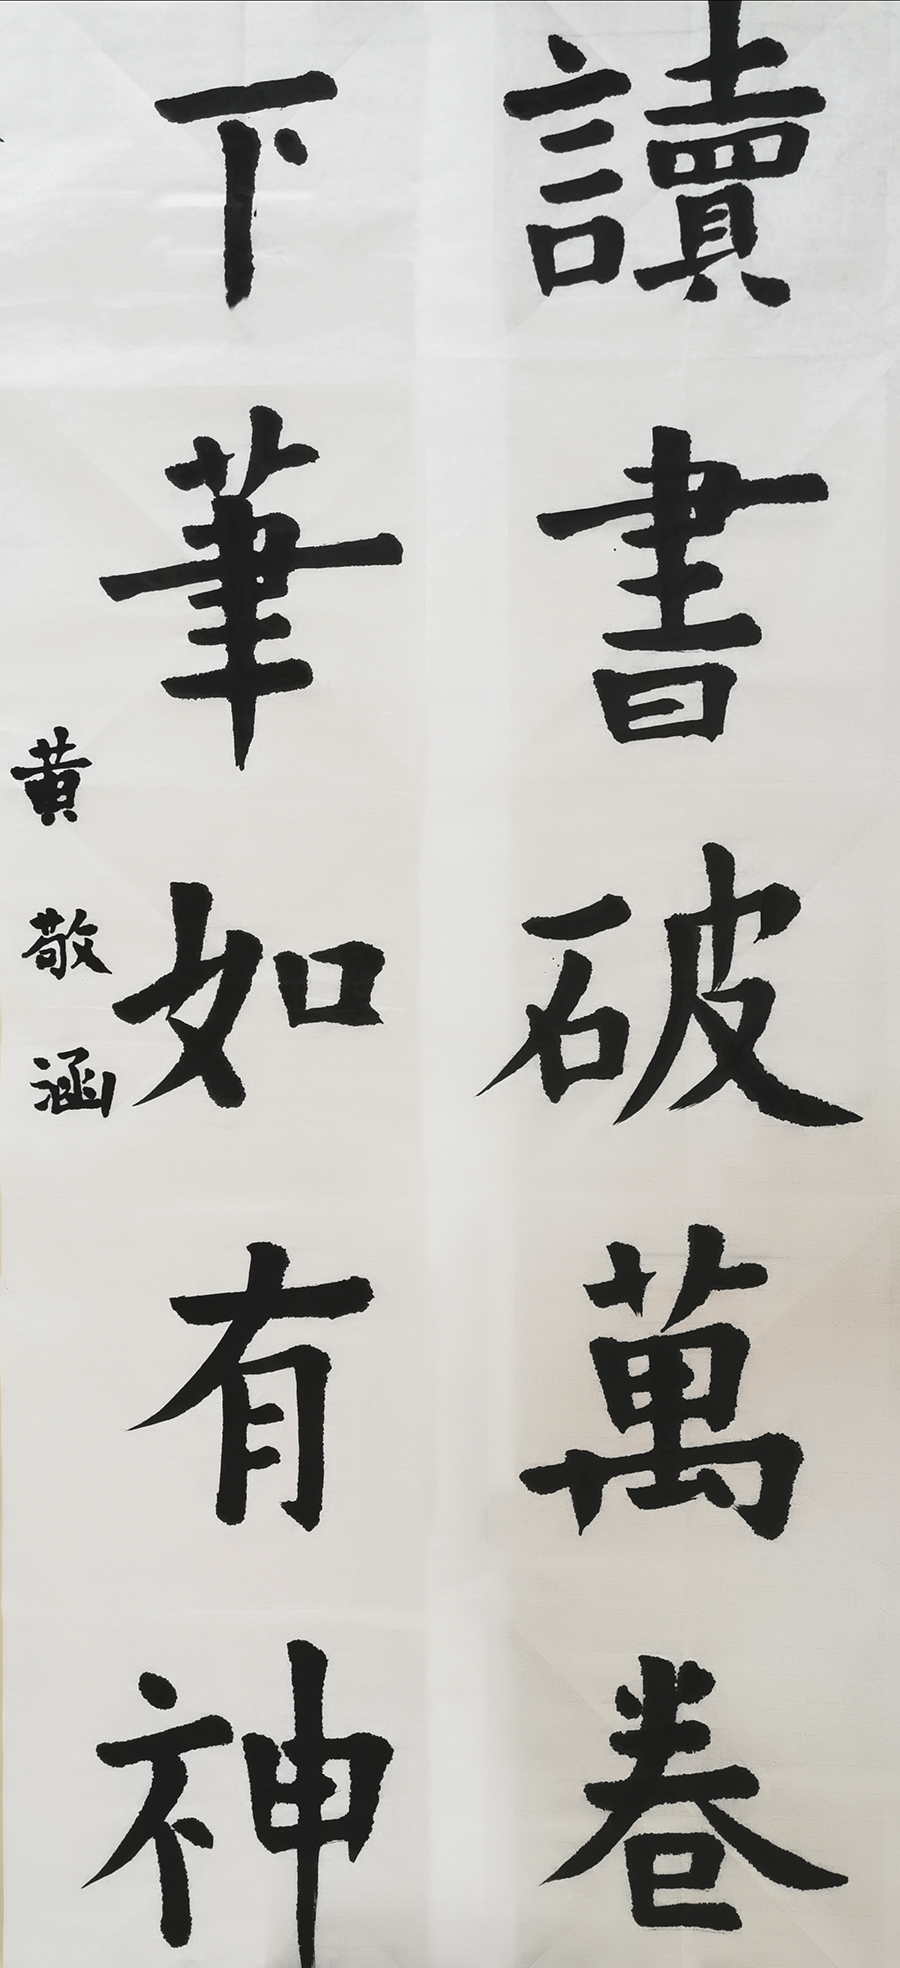 讀書破萬卷
下筆如有神
黄敬涵